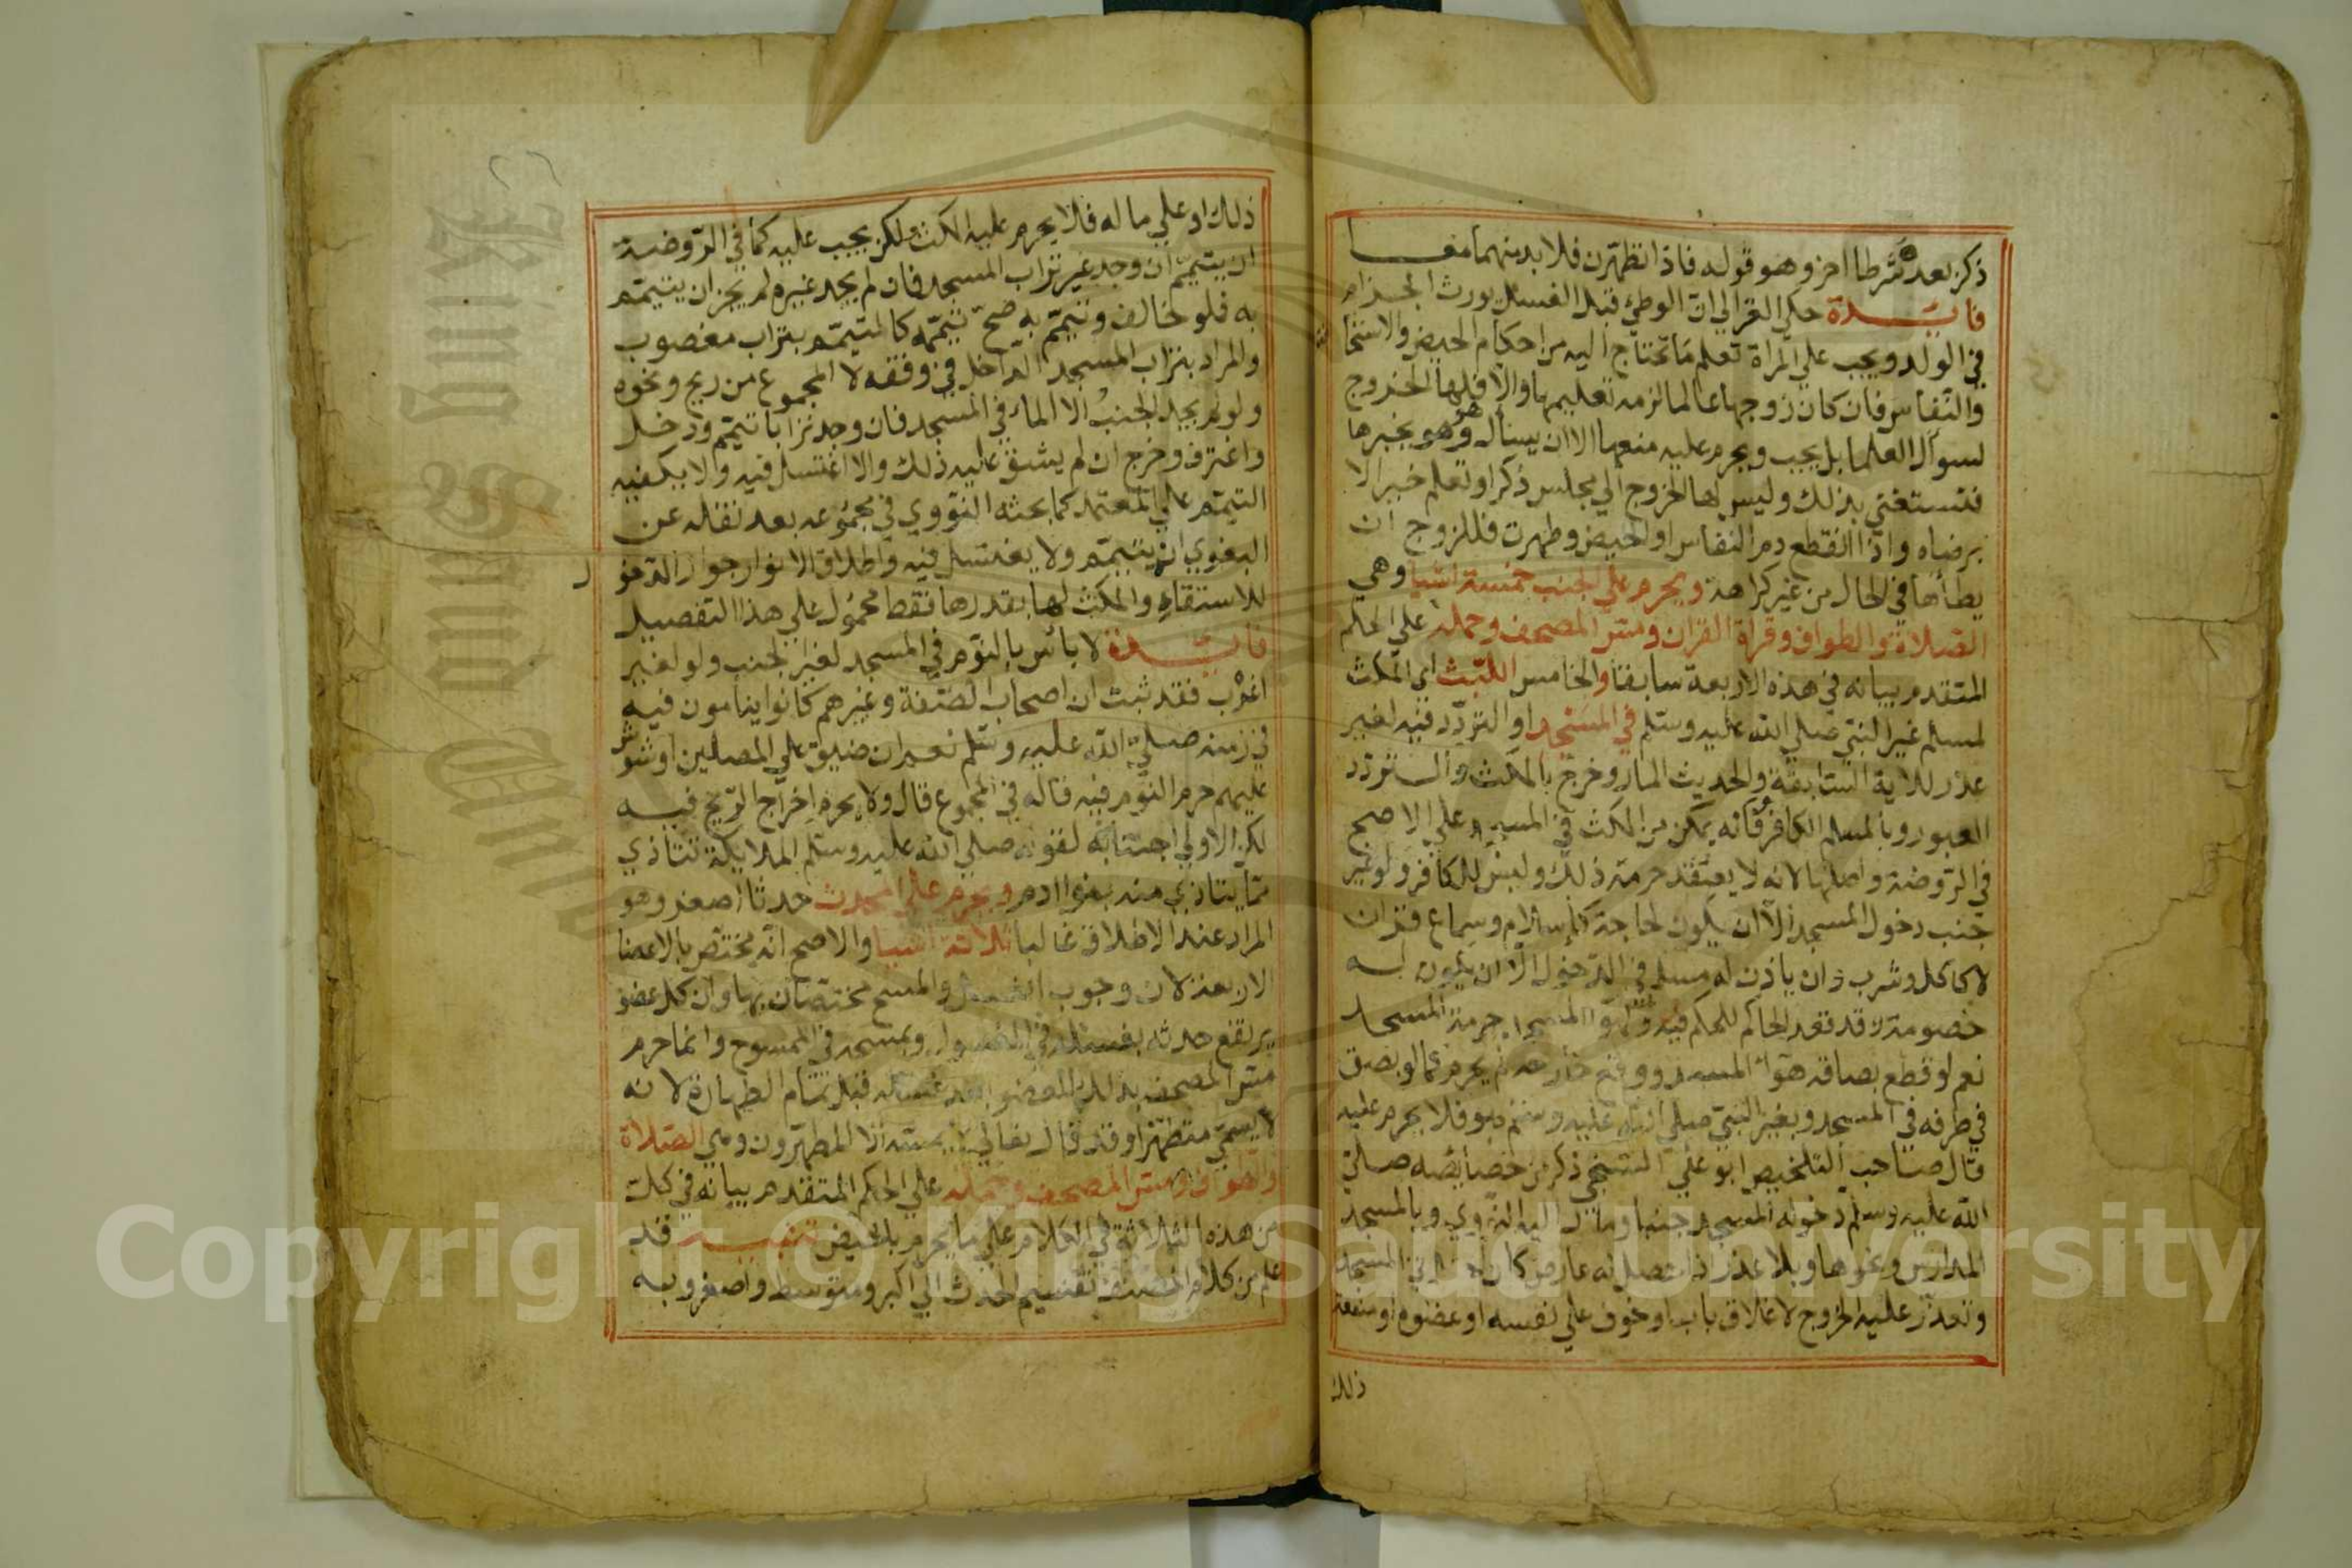 ذكر بعده شرطا اخر وهو قوله فاذا تطهرن فلا بد منهما معا
فائدة حكي الغزالي ان الوطئ قبل الغسل يورث الجذام
في الولد ويجب علي المراة تعلم ما تحتاج اليه من احكام الحيض والاستحا
والنفاس فان كان زوجها عالما لزمه تعليمها والا فلها الخروج
لسوال العلما بل يجب ويحرم عليه منعها الا ان يسال هو ويخبرها
فتستغني بذلك وليس لها الخروج الي مجلس ذكر او تعلم خير الا
برضاه واذا انقطع دم النفاس او الحيض وطهرت فللزوج ان
يطاها في الحال من غير كراهة ويحرم علي الجنب خمسة اشيا وهي
الصلاة والطواف وقراة القران ومس المصحف وحمله علي الحكم
المتقدم بيانه في هذه الاربعة سابقا والخامس اللبث اي المكث
لمسلم غير النبي صلي الله عليه وسلم في المسجد او التردد فيه لغير
عذر للاية السابقة والحديث المار وخرج بالمكث والتردد
العبور وبالمسلم الكافر فانه يمكن من المكث في المسجد علي الاصح
في الروضة واصلها لانه لا يعتقد حرمة ذلك وليس للكافر ولو غير
جنب دخول المسجد الا ان يكون لحاجة كاسلام وسماع قران
لا كاكل وشرب وان ياذن له مسلم في الدخول الا ان يكون له
خصومة وقد قعد الحاكم للحكم فيه ولهوا المسجد حرمة المسجد
نعم لو قطع بصاقه هوا المسجد ووقع خارجه لم يحرم كما لو بصق
في طرفه في المسجد وبغير النبي صلي الله عليه وسلم هو فلا يحرم عليه
قال صاحب التلخيص ابو علي السنجي ذكر من خصايصه صلي
الله عليه وسلم دخوله المسجد جنبا ومال اليه النووي وبالمسجد
المدارس ونحوها وبلا عذر اذا حصل له عارض كان احتلم في المسجد
وتعذر عليه الخروج لاغلاق باب او خوف علي نفسه او عضوه او منفعة
ذلك
ذلك او علي ماله فلا يحرم عليه المكث ولكن يجب عليه كما في الروضة
ان يتيمم ان وجد غير تراب المسجد فان لم يجد غيره لم يجز ان يتيمم
به فلو خالف وتيمم به صح تيممه كالمتيمم بتراب مغصوب
والمراد بتراب المسجد الداخل في وقفه لا المجموع من ريح ونحوه
ولو لم يجد الجنب الا الماء في المسجد فان وجد ترابا تيمم ودخل
واغترف وخرج ان لم يشق عليه ذلك والا اغتسل فيه ولا يكفيه
التيمم علي المعتمد كما بحثه النووي في مجموعه بعد نقله عن
البغوي انه يتيمم ولا يغتسل فيه واطلاق الانوار جواز الدخو ل
للاستقاء والمكث لها بقدرها فقط محمول علي هذا التفصيل
فائدة لا باس بالنوم في المسجد لغير الجنب ولو لغير
اعزب فقد ثبت ان اصحاب الصفة وغيرهم كانوا ينامون فيه
في زمنه صلي الله عليه وسلم نعم ان ضيق علي المصلين او شوش
عليهم حرم النوم فيه قاله في المجموع قال ولا يحرم اخراج الريح فيه
لكن الاولي اجتنابه لقوله صلي الله عليه وسلم الملايكة تتاذي
مما يتاذي منه بنوا ادم ويحرم علي المحدث حدثا اصغر وهو
المراد عند الاطلاق غالبا ثلاثة اشيا والاصح انه مختص بالاعضا
الاربعة لان وجوب الغسل والمسح مختصان بها وان كل عضو
يرتفع حدثه بغسله في المغسول وبمسحه في الممسوح وانما حرم
مس المصحف بذلك العضو بعد غسله قبل تمام الطهارة لانه
لا يسمي متطهرا وقد قال تعالي لا يمسه الا المطهرون وهي الصلاة
والطواف ومس المصحف وحمله علي الحكم المتقدم بيانه في كل
من هذه الثلاثة في الكلام علي ما يحرم بالحيض تنبيه قد
علم من كلام المصنف تقسيم الحدث الي اكبر ومتوسط واصغر وبه
Copyright © King Saud University